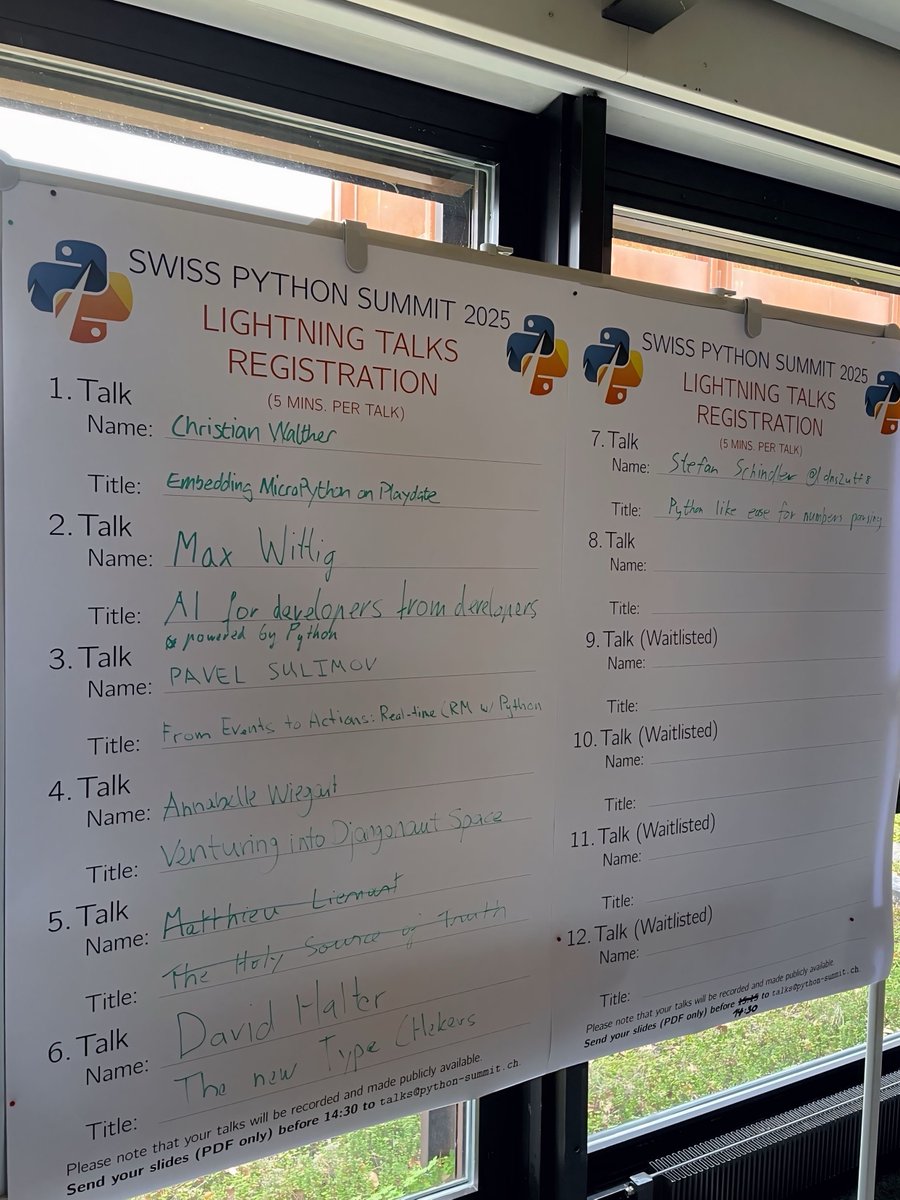 SWISS PYTHON SUMMIT 2025
LIGHTNING TALKS
REGISTRATION
(5 MINS. PER TALK)
1. Talk
Name: Christian Walther
Title: Embedding MicroPython on Playdate
2. Talk
Name: Max Wittig
Title: AI for developers from developers
powered by Python
3. Talk
Name: PAVEL SULIMOV
Title: From Events to Actions: Real-time CRM w/ Python
4. Talk
Name: Annabelle Wiegart
Title: Venturing into Djangonaut Space
5. Talk
Name: Matthieu
Title: The Holy Source of Truth
6. Talk
Name: David Halter
Title: The new Type Checkers
Please note that your talks will be recorded and made publicly available.
Send your slides (PDF only) before 14:30 to talks@python-summit.ch.
SWISS PYTHON SUMMIT 2025
LIGHTNING TALKS
REGISTRATION
(5 MINS. PER TALK)
7. Talk
Name: Stefan Schindler
Title: Python like ease for numbers parsing
8. Talk
Name:
Title:
9. Talk (Waitlisted)
Name:
Title:
10. Talk (Waitlisted)
Name:
Title:
11. Talk (Waitlisted)
Name:
Title:
12. Talk (Waitlisted)
Name:
Title:
Please note that your talks will be recorded and made publicly available.
Send your slides (PDF only) before 15:15 to talks@python-summit.ch.
14:30